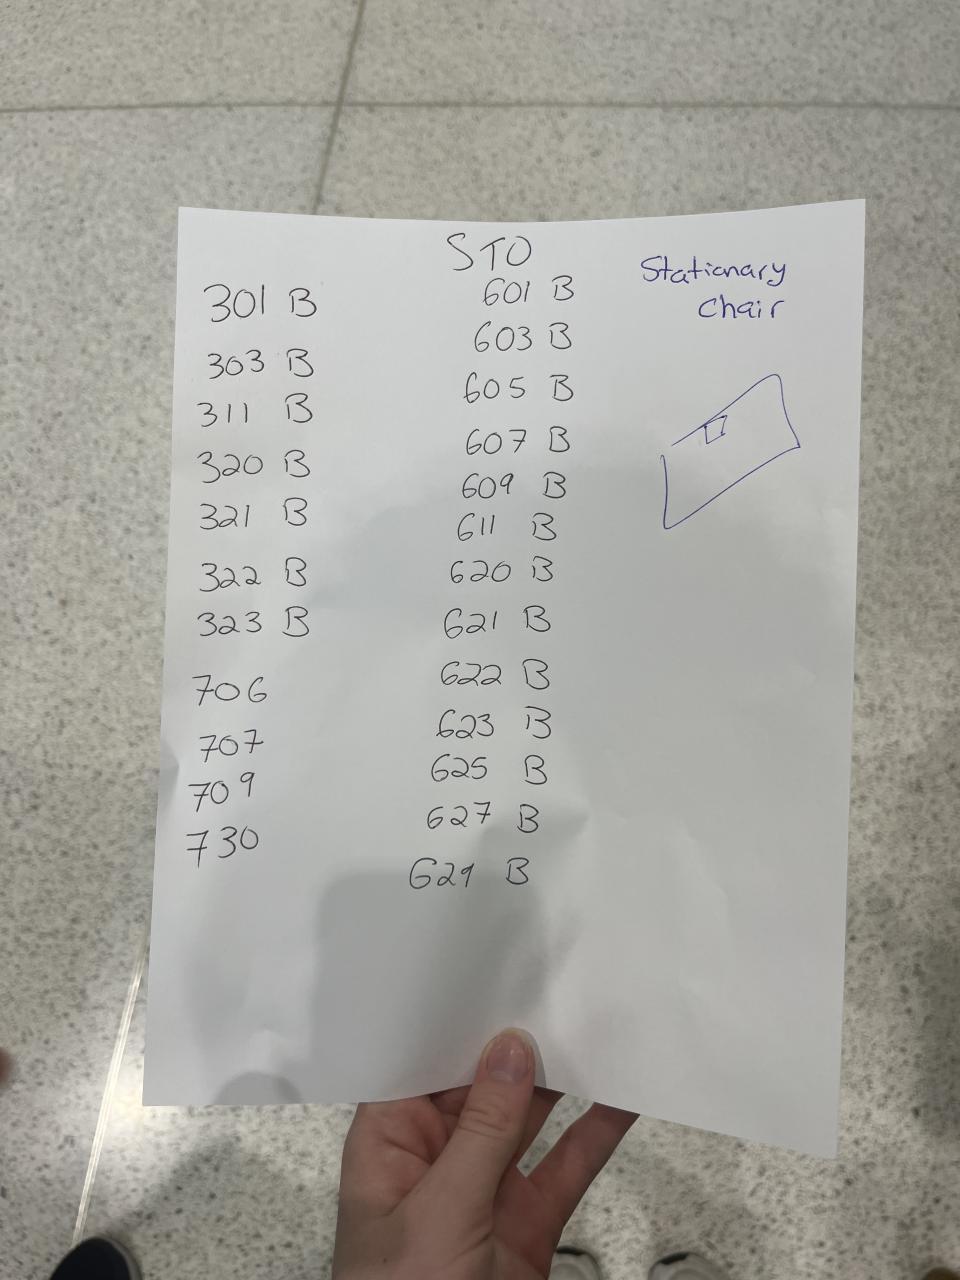 STO
301 B
303 B
311 B
320 B
321 B
322 B
323 B
706
707
709
730
601 B
603 B
605 B
607 B
609 B
611 B
620 B
621 B
622 B
623 B
625 B
627 B
629 B
Stationary
Chair